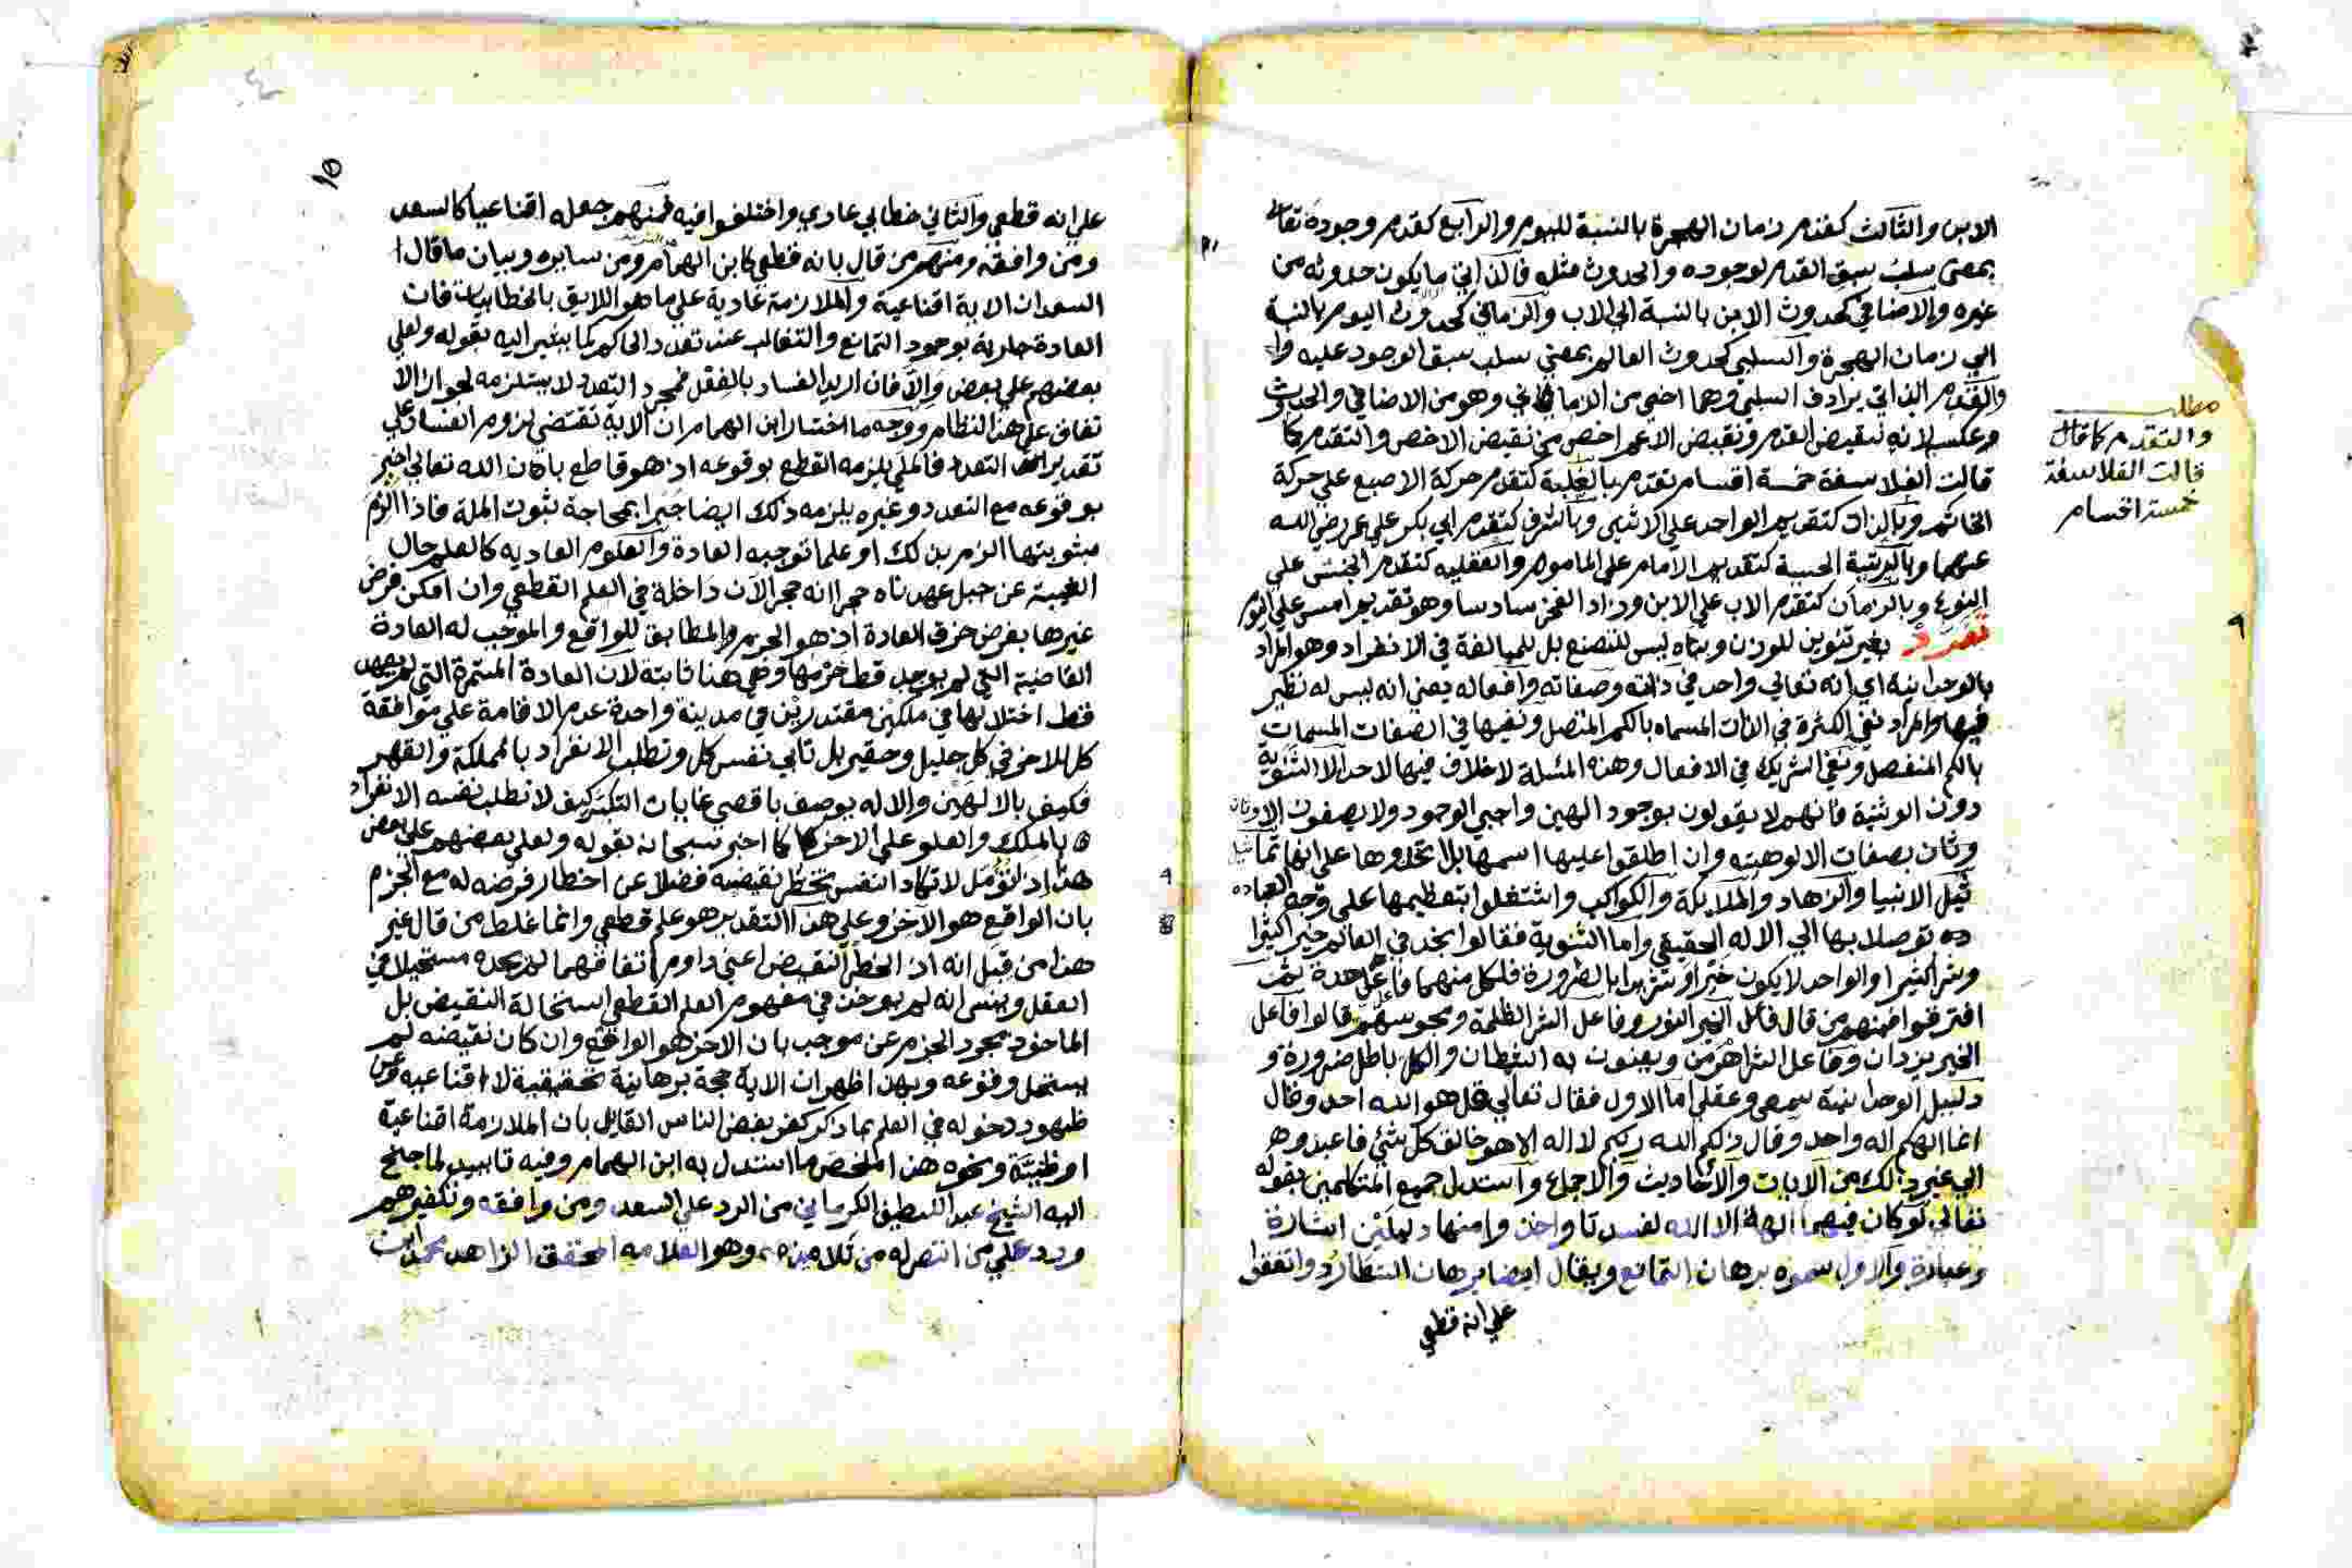 الابن والثالث كقدم زمان الهجرة بالنسبة لليوم والرابع كقدم وجوده تعالى
بمعنى سلب سبق العدم لوجوده والحدوث مثله فالذاتي ما يكون حدوثه من
غيره والاضافي كحدوث الابن بالنسبة الى الاب والزماني كحدوث اليوم بالنسبة
الي زمان الهجرة والسلبي كحدوث العالم بمعنى سلب سبق الوجود عليه
والقدم الذاتي يرادف السلبي وهما اخص من الزماني وهو من الاضافي والحدوث
وعكسه لانه نقيض القدم ونقيض الاعم اخص من نقيض الاخص والتقدم كما
قالت الفلاسفة خمسة اقسام تقدم بالعلية كتقدم حركة الاصبع علي حركة
الخاتم وبالذات كتقديم الواحد علي الاثنين وبالشرف كتقدم ابي بكر علي عمر رضي الله
عنهما وبالرتبة الحسية كتقديم الامام علي الماموم والعقليه كتقدم الجنس علي
النوع وبالزمان كتقدم الاب علي الابن وزاد الفخر سادسا وهو تقديم امس علي اليوم
تفرد بغير تنوين للوزن وبناه ليس للتصنع بل للمبالغة في الانفراد وهو المراد
بالوحدانية اي انه تعالي واحد في ذاته وصفاته وافعاله يعني انه ليس له نظير
فيها والمراد نفي الكثرة في الذات المسماه بالكم المتصل ونفيها في الصفات المسمات
بالكم المنفصل ونفي الشريك في الافعال وهذه المسئلة لاخلاف فيها لاحد الا الثنوية
دون الوثنية فانهم لا يقولون بوجود الهين واجبي الوجود ولا يصفون الاوثان
وثان بصفات الالوهيته وان اطلقوا عليها اسمها بل اتخذوها علي انها تما
ثيل الانبيا والزهاد والملايكة والكواكب واشتغلوا بتعظيمها علي وجه العباده
ده توصلا بها الي الاله الحقيقي واما الثنوية فقالوا نجد في العالم خيرا كثيرا
وشرا كثيرا والواحد لا يكون خيرا وشريرا بالضرورة فلكل منهما فاعل حدة ثمت
افترقوا فمنهم من قال فاعل الخير النور وفاعل الشر الظلمة ومجوسهم قالوا فاعل
الخير يزدان وفاعل الشر اهرمن ويعنون به الشيطان والكل باطل ضرورة و
دليل الوحدانية سمعي وعقلي اما الاول فقال تعالي قل هو الله احد وقال
انما الهكم اله واحد وقال ذلكم الله ربكم لا اله الا هو خالق كل شئ فاعبدوه
الي غير ذلك من الايات والاحاديث والاجماع واستدل جميع المتكلمين بقوله
تعالي لو كان فيهما الهة الا الله لفسدتا واخذوا منها دليلين اشارة
وعبارة والاول سموه برهان التمانع ويقال ايضا برهان التطارد واتفقوا
علي انه قطعي
مطلب
والتقدم كما قال
قالت الفلاسفة
خمسة اقسام
١٥
علي انه قطعي والثاني خطابي عادي واختلفوا فيه فمنهم جعله اقناعيا كالسعد
ومن وافقه ومنهم من قال بانه قطعي كابن الهمام ومن سايره وبيان ما قال
السعد ان الاية اقناعية والملازمة عادية علي ما هو اللايق بالخطابيات فان
العادة جارية بوجود التمانع والتغالب عند تعدد الحاكم كما يشير اليه بقوله ولعلي
بعضهم علي بعض والا فان اريد الفساد بالفعل فمجرد التعدد لا يستلزمه لجواز الا
تفاق علي هذا النظام ووجه ما اختار ابن الهمام ان الاية تقتضي لزوم الفساد علي
تقدير التعدد فالملي يلزمه القطع بوقوعه اذ هو قاطع بان الله تعالي اخبر
بوقوعه مع التعدد وغيره يلزمه ذلك ايضا جبرا بمحاجة ثبوت الملة فاذا الزم
بثبوتها الزم بذلك او علما توجبه العادة والعلوم العاديه كالعلم حال
الغيبة عن جبل عهدناه حجرا انه حجر الآن داخلة في العلم القطعي وان امكن فرض
غيرها بفرض خرق العادة اذ هو الجزم والمطابق للواقع والموجب له العادة
القاضية التي لم يوجد قط خرمها وهي هنا ثابتة لان العادة المستمرة التي لم يعهد
قط اختلالها في ملكين مقتدرين في مدينة واحدة عدم الاقامة علي موافقة
كل للاخر في كل جليل وحقير بل تابي نفس كل وتطلب الانفراد بالمملكة والقهر
فكيف بالالهين والاله يوصف باقصي غايات التكبر كيف لا تطلب نفسه الانفراد
بالملك والعلو علي الاخر كما اخبر سبحانه بقوله ولعلي بعضهم علي بعض
هذا اذ تؤمل لا تكاد النفس تخطر نقيضه فضلا عن اخطار فرضه له مع الجزم
بان الواقع هو الاخر وعلي هذا التقدير هو علم قطعي وانما غلط من قال غير
هذا من قبل انه اذا اخطر النقيض اعني دوام اتفاقهما لم يجده مستحيلا في
العقل وينسي انه لم يوخذ في مفهوم العلم القطعي استحالة النقيض بل
الماخوذ مجرد الجزم عن موجب بان الاخر هو الواقع وان كان نقيضه لم
يستحل وقوعه وبهذا ظهر ان الاية حجة برهانية تحقيقية لا اقناعيه وعن
ظهور دخوله في العلم بما ذكر كفر بعض الناس القايل بان الملازمة اقناعية
او ظنية ونحوه هذا ملخص ما استدل به ابن الهمام وفيه تاييد لما جنح
اليه الشيخ عبد اللطيف الكرماني من الرد علي السعد ومن وافقه وتكفيرهم
ورد علي من انتصر له من تلامذه وهو العلامه المحقق الزاهد محمد ابن